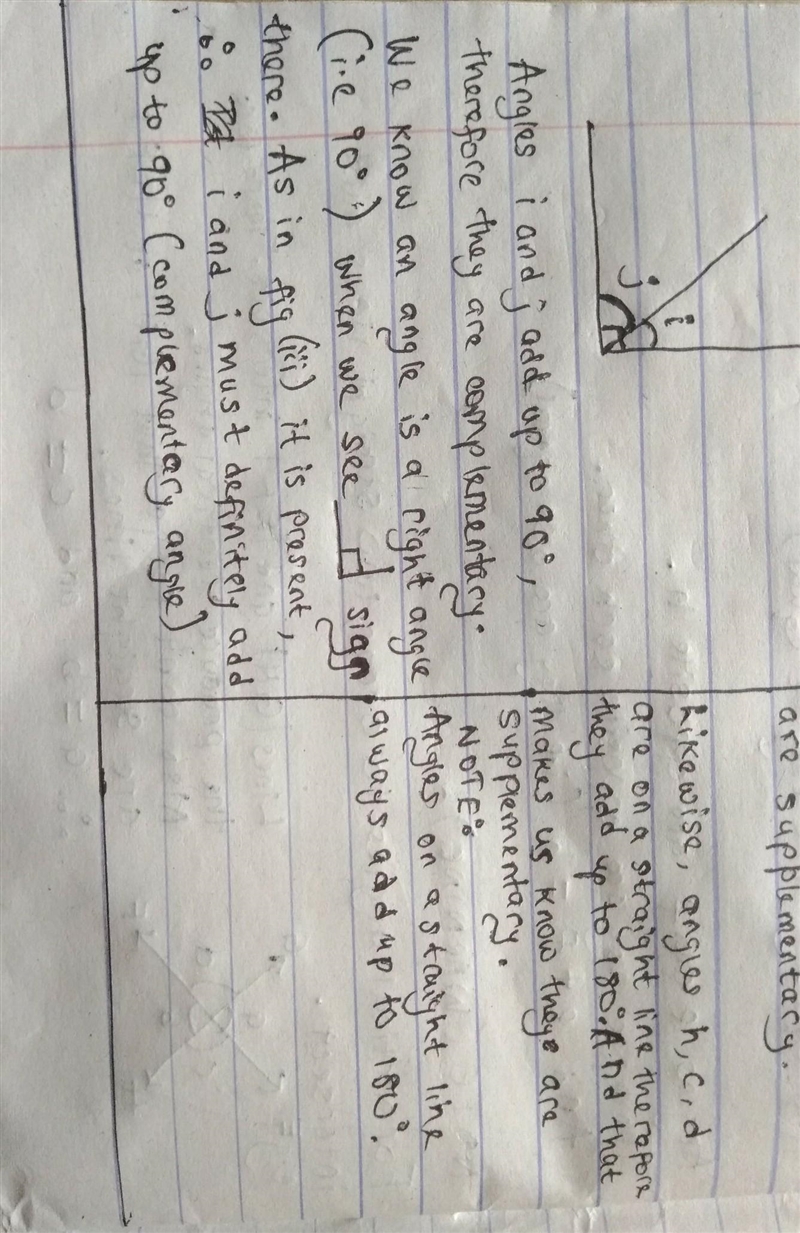 i
j
Angles i and j add up to 90°,
therefore they are complementary.
We know an angle is a right angle
(i.e 90°) when we see sign
there. As in fig (iii) it is present,
∴ i and j must definitely add
up to 90° (complementary angle)
are supplementary.
Likewise, angles h, c, d
are on a straight line therefore
they add up to 180°. And that
makes us know they are
supplementary.
NOTE:
Angles on a straight line
always add up to 180°.